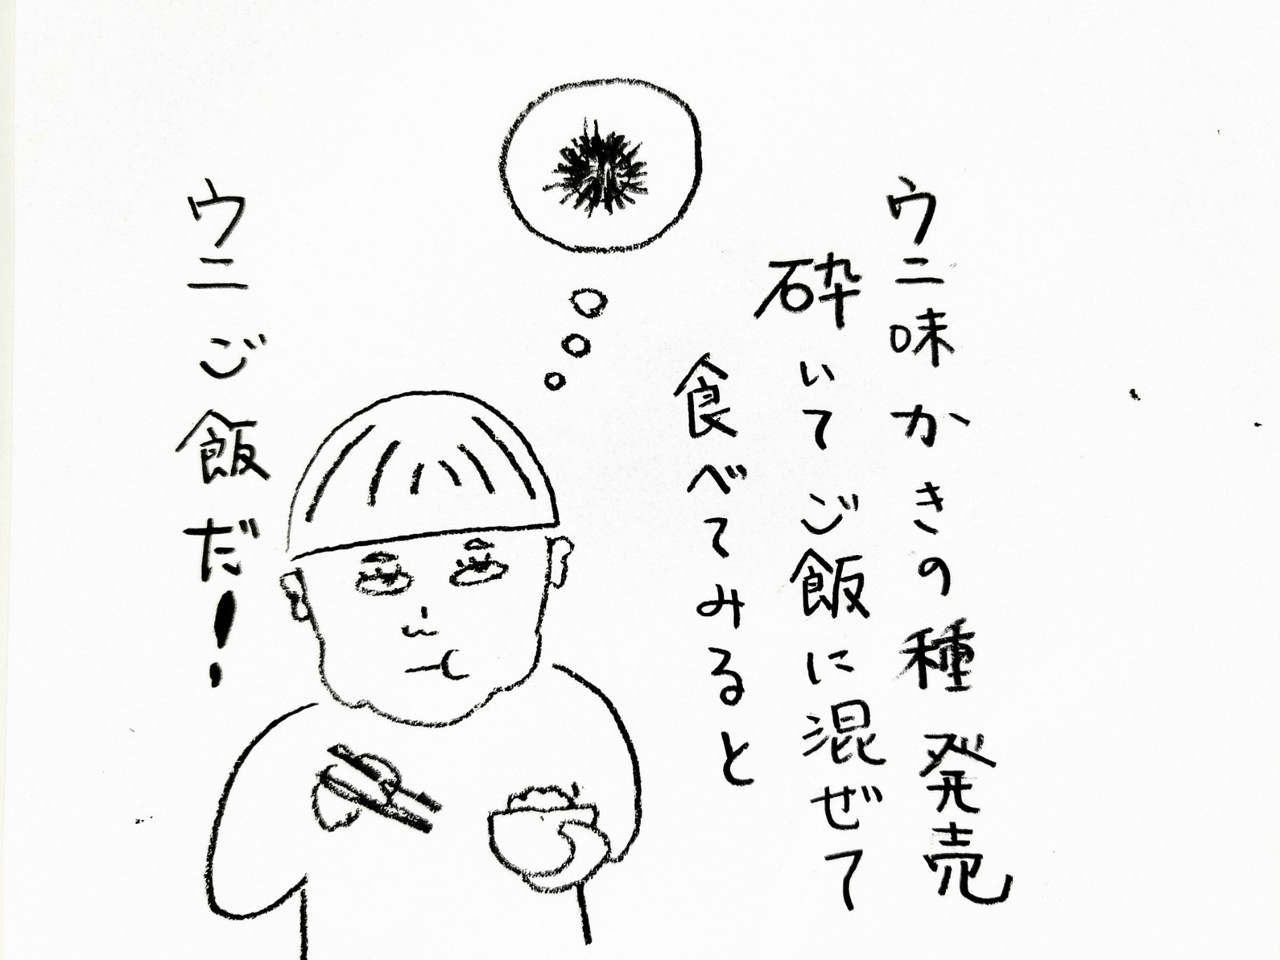 ウニ味かきの種発売
砕いてご飯に混ぜて
食べてみると
ウニご飯だ!